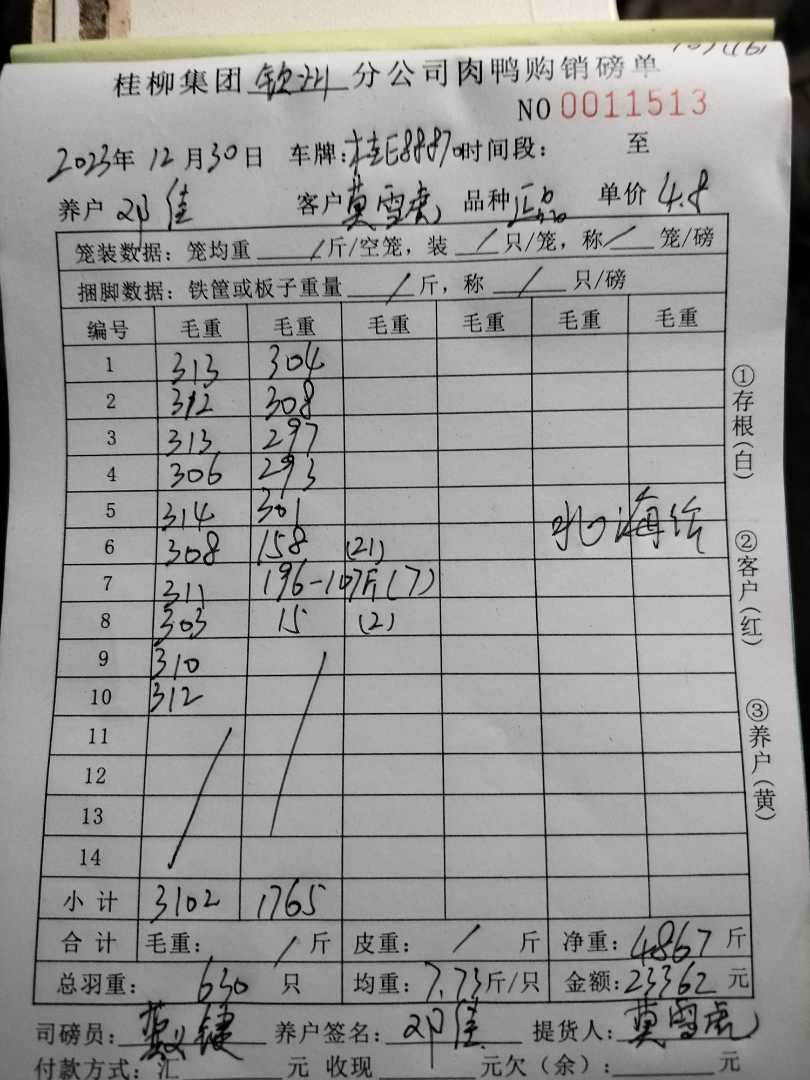 桂柳集团 钦州 分公司肉鸭购销磅单
NO 0011513
2023年 12月30日 车牌:桂E88870 时间段: 至
养户 邓佳 客户 莫雪虎 品种 正品 单价 4.8
笼装数据:笼均重 / 斤/空笼,装 / 只/笼,称 / 笼/磅
捆脚数据:铁筐或板子重量 / 斤,称 / 只/磅
编号 毛重 毛重 毛重 毛重 毛重 毛重
1 313 304
2 312 308
3 313 297
4 306 293
5 314 301
6 308 158 (21)
7 311 196-107斤(7)
8 303 15 (2)
9 310
10 312
11
12
13
14
小计 3102 1765
合计 毛重: / 斤 皮重: / 斤 净重: 4867 斤
总羽重: 630 只 均重: 7.73 斤/只 金额: 23362 元
司磅员: 养户签名: 邓佳 提货人: 莫雪虎
付款方式:汇 元 收现 元欠(余): 元
北海给
①存根(白)
②客户(红)
③养户(黄)